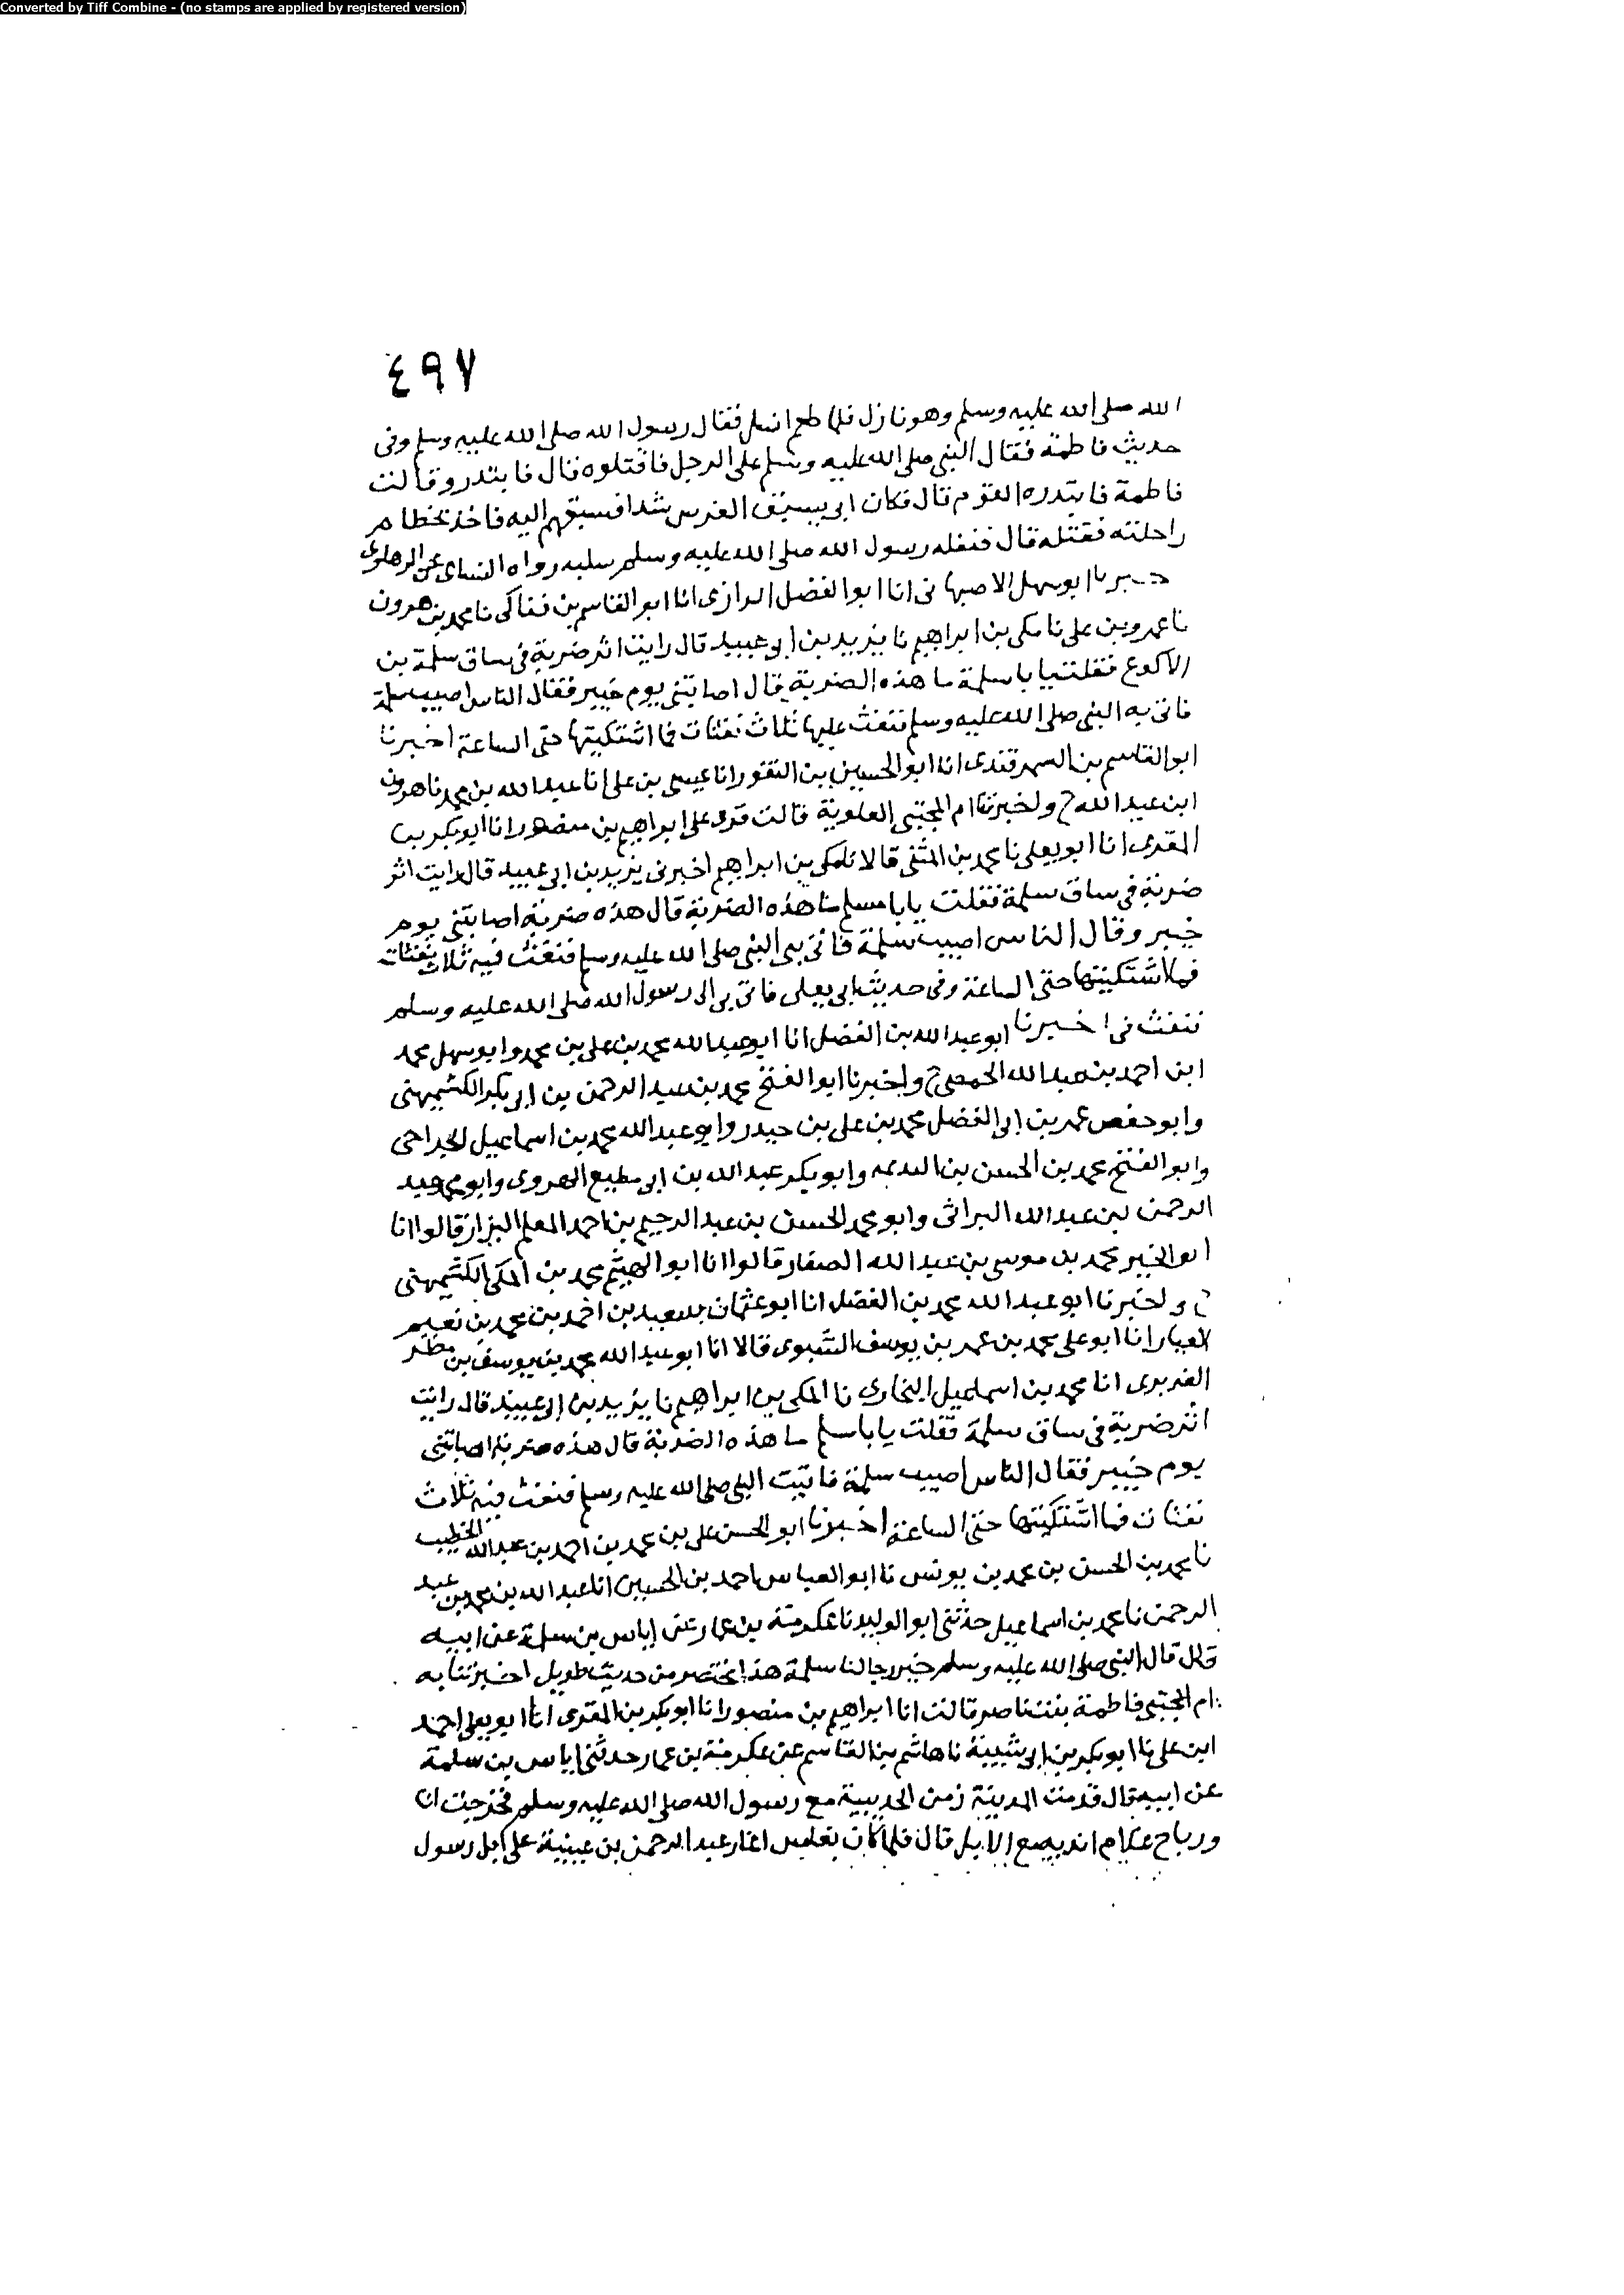 Converted by Tiff Combine - (no stamps are applied by registered version)
٤٩٧
الله صلى الله عليه وسلم وهو نازل فلما طعم انسل فقال رسول الله صلى الله عليه وسلم وفى
حديث فاطمة فقال النبي صلى الله عليه وسلم على الرجل فاقتلوه قال فابتدر وقالت
فاطمة فابتدره القوم قال فكان ابي يسبق الفرس شدا فسبقهم اليه فاخذ بخطام
راحلته فقتله قال فنفله رسول الله صلى الله عليه وسلم سلبه رواه النساى عن الرهاوى
ابو سهل الاصبهانى انا ابو الفضل الرازى انا ابو القاسم بن فناكى نا محمد بن هرون
نا عمرو بن على نا مكى بن ابراهيم نا يزيد بن ابى عبيد قال رايت اثر ضربة فى ساق سلمة بن
الاكوع فقلت يا با سلمة ما هذه الضربة قال اصابتنى يوم خيبر فقال الناس اصيب سلمة
فاتى به النبي صلى الله عليه وسلم فنفث عليها ثلاث نفثات فما اشتكيتها حتى الساعة اخبرنا
ابو القاسم بن السمرقندى انا ابو الحسين بن النقور انا عيسى بن على انا عبد الله بن محمد نا هرون
ابن عبد الله ح واخبرتنا ام المجتبى العلوية قالت قرى على ابراهيم بن منصور انا ابو بكر بن
المقرى انا ابو يعلى نا محمد بن المثنى قالا نا مكى بن ابراهيم اخبرنى يزيد بن ابى عبيد قال رايت اثر
ضربة فى ساق سلمة فقلت يا با مسلم ما هذه الضربة قال هذه ضربة اصابتنى يوم
خيبر وقال الناس اصيب سلمة فاتى بى النبي صلى الله عليه وسلم فنفث فيه ثلاث نفثات
فما اشتكيتها حتى الساعة وفى حديث ابى يعلى فاتى بى الى رسول الله صلى الله عليه وسلم
فنفث فى اخبرنا ابو عبد الله بن الفضل انا ابو عبد الله محمد بن على بن محمد وابو سهل محمد
ابن احمد بن عبد الله الحفصى ح واخبرنا ابو الفتح محمد بن عبد الرحمن بن ابى بكر الكشميهنى
وابو حفص عمر بن ابى الفضل محمد بن على بن حيدر وابو عبد الله محمد بن اسماعيل الخراجى
وابو الفتح محمد بن الحسن بن وابو بكر عبد الله بن ابى مطيع الهروى وابو محمد عبد
الرحمن بن عبد الله البراثى وابو محمد الحسن بن عبد الرحيم بن احمد المعلم البزاز قالوا انا
ابو الخير محمد بن موسى بن عبد الله الصفار قالوا انا ابو الهيثم محمد بن المكى الكشميهنى
ح واخبرنا ابو عبد الله محمد بن الفضل انا ابو عثمان سعيد بن احمد بن محمد بن نعيم
العيار انا ابو على محمد بن عمر بن يوسف الشبوى قالا انا ابو عبد الله محمد بن يوسف بن مطر
الفربرى انا محمد بن اسماعيل البخارى نا المكى بن ابراهيم نا يزيد بن ابى عبيد قال رايت
اثر ضربة فى ساق سلمة فقلت يا با سلم ما هذه الضربة قال هذه ضربة اصابتنى
يوم خيبر فقال الناس اصيب سلمة فاتيت النبي صلى الله عليه وسلم فنفث فيه ثلاث
نفثات فما اشتكيتها حتى الساعة اخبرنا ابو الحسن على بن محمد بن احمد بن عبد الله الخطيب
نا محمد بن الحسن بن محمد بن يونس نا ابو العباس احمد بن الحسين انا عبد الله بن محمد بن عبد
الرحمن نا محمد بن اسماعيل حدثنى ابو الوليد نا عكرمة بن عمار عن اياس بن سلمة عن ابيه
قال قال النبي صلى الله عليه وسلم خير رجالنا سلمة هذا مختصر من حديث طويل اخبرتنا به
ام المجتبى فاطمة بنت ناصر قالت انا ابراهيم بن منصور انا ابو بكر بن المقرى انا ابو يعلى احمد
ابن على نا ابو بكر بن ابى شيبة نا هاشم بن القاسم عن عكرمة بن عمار حدثنى اياس بن سلمة
عن ابيه قال قدمت المدينة زمن الحديبية مع رسول الله صلى الله عليه وسلم فخرجت انا
ورباح غلام الابل قال فلما كان بغلس اغار عبد الرحمن بن عيينة على ابل رسول